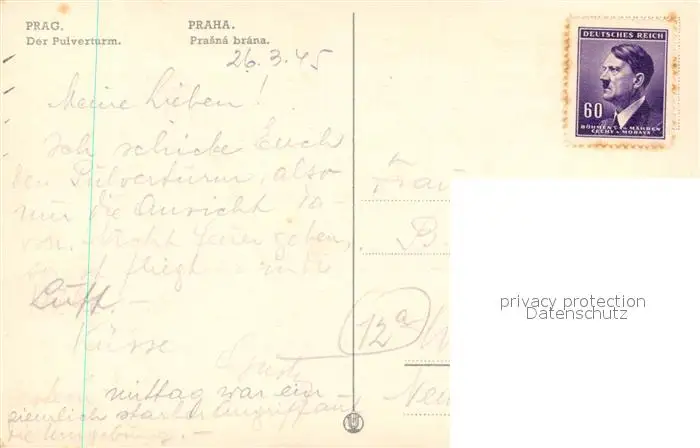 PRAG.
Der Pulverturm.
PRAHA.
Prašná brána.
26.3.45
Meine Lieben!
Ich schicke Euch
den Pulverturm, also
nur die Ansicht da-
von. Nicht Feuer geben,
fliegt in die
Luft. —
Küsse
mittag war ein
ziemlich starker Angriff auf
die Umgebung. —
DEUTSCHES REICH
60
BÖHMEN U. MÄHREN
ČECHY A MORAVA
Frau
B
12a
privacy protection
Datenschutz